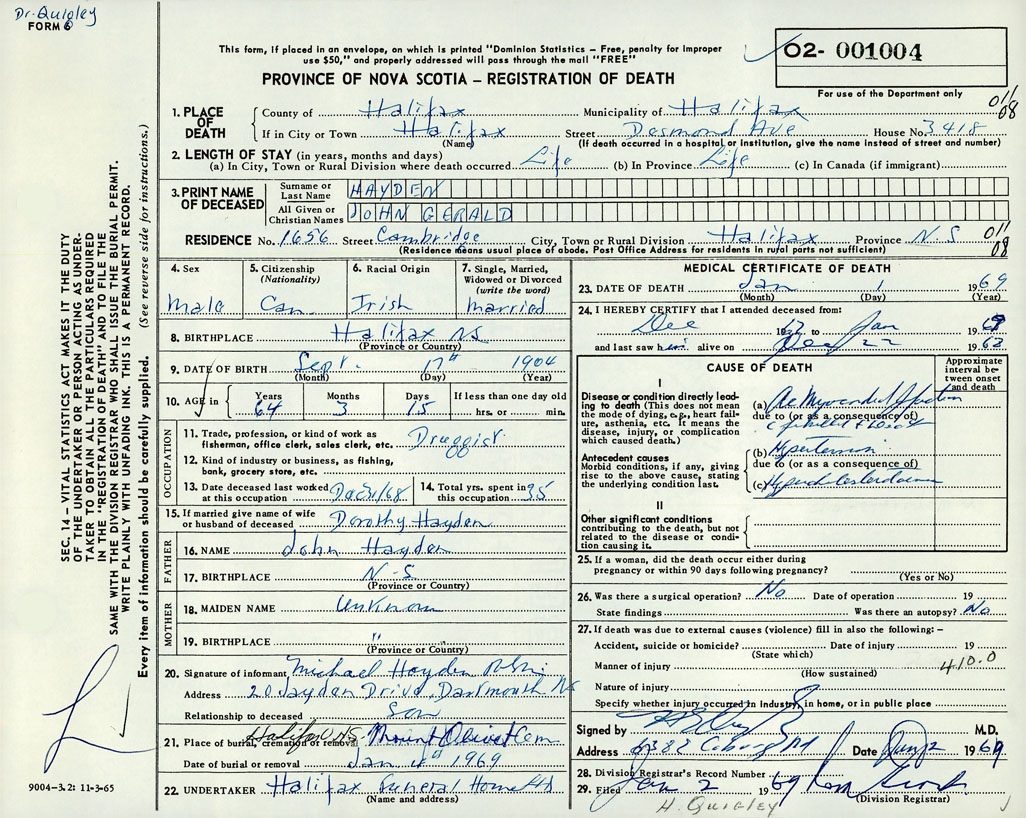 Dr. Quigley
FORM 6
This form, if placed in an envelope, on which is printed "Dominion Statistics – Free, penalty for improper
use $50," and properly addressed will pass through the mail "FREE"
PROVINCE OF NOVA SCOTIA – REGISTRATION OF DEATH
02- 001004
For use of the Department only
011
08
SEC. 14 – VITAL STATISTICS ACT MAKES IT THE DUTY
OF THE UNDERTAKER OR PERSON ACTING AS UNDER-
TAKER TO OBTAIN ALL THE PARTICULARS REQUIRED
IN THE "REGISTRATION OF DEATH" AND TO FILE THE
SAME WITH THE DIVISION REGISTRAR WHO SHALL ISSUE THE BURIAL PERMIT.
WRITE PLAINLY WITH UNFADING INK. THIS IS A PERMANENT RECORD.
Every item of information should be carefully supplied. (See reverse side for instructions.)
1. PLACE OF DEATH
County of Halifax Municipality of Halifax
If in City or Town Halifax Street Desmond Ave House No. 3418
(Name) (If death occurred in a hospital or institution, give the name instead of street and number)
2. LENGTH OF STAY (in years, months and days)
(a) In City, Town or Rural Division where death occurred Life (b) In Province Life (c) In Canada (if immigrant)
3. PRINT NAME OF DECEASED
Surname or Last Name HAYDEN
All Given or Christian Names JOHN GERALD
RESIDENCE No. 1656 Street Cambridge City, Town or Rural Division Halifax Province N.S
(Residence means usual place of abode. Post Office Address for residents in rural parts not sufficient)
011
08
4. Sex
Male
5. Citizenship (Nationality)
Can.
6. Racial Origin
Irish
7. Single, Married, Widowed or Divorced (write the word)
Married
8. BIRTHPLACE Halifax NS
(Province or Country)
9. DATE OF BIRTH Sept. 17th 1904
(Month) (Day) (Year)
10. AGE in Years 64 Months 3 Days 15 If less than one day old hrs. or min.
OCCUPATION
11. Trade, profession, or kind of work as
fisherman, office clerk, sales clerk, etc. Druggist
12. Kind of industry or business, as fishing,
bank, grocery store, etc.
13. Date deceased last worked at this occupation Dec 31/68
14. Total yrs. spent in this occupation 35
15. If married give name of wife
or husband of deceased Dorothy Hayden
FATHER
16. NAME John Hayden
17. BIRTHPLACE N-S
(Province or Country)
MOTHER
18. MAIDEN NAME Unknown
19. BIRTHPLACE "
(Province or Country)
20. Signature of informant Michael Hayden
Address 20 Jayden Drive, Dartmouth NS
Relationship to deceased Son
21. Place of burial, cremation or removal Halifax N.S. Mount Olivet Cem
Date of burial or removal Jan 4th 1969
22. UNDERTAKER Halifax Funeral Home Ltd
(Name and address)
9004-3.2: 11-3-65
MEDICAL CERTIFICATE OF DEATH
23. DATE OF DEATH Jan 1 1969
(Month) (Day) (Year)
24. I HEREBY CERTIFY that I attended deceased from:
Dec to Jan 1969
and last saw him alive on Dec 22 19
CAUSE OF DEATH
Approximate interval between onset and death
I
Disease or condition directly lead-
ing to death (This does not
mean the mode of dying, e.g., heart fail-
ure, asthenia, etc. It means the
disease, injury, or complication
which caused death.)
(a) Ac Myocardial Infarction
due to (or as a consequence of)
Antecedent causes
Morbid conditions, if any, giving
rise to the above cause, stating
the underlying condition last.
(b) Hypertension
due to (or as a consequence of)
(c)
II
Other significant conditions
contributing to the death, but not
related to the disease or condi-
tion causing it.
25. If a woman, did the death occur either during
pregnancy or within 90 days following pregnancy?
(Yes or No)
26. Was there a surgical operation? No Date of operation 19
State findings Was there an autopsy? No
27. If death was due to external causes (violence) fill in also the following: –
Accident, suicide or homicide? Date of injury 19
(State which)
Manner of injury 410.0
(How sustained)
Nature of injury
Specify whether injury occurred in industry, in home, or in public place
Signed by M.D.
Address 6382 Coburg Rd Date Jan 2 1969
28. Division Registrar's Record Number
29. Filed Jan 2 1969
(Division Registrar)
H. Quigley